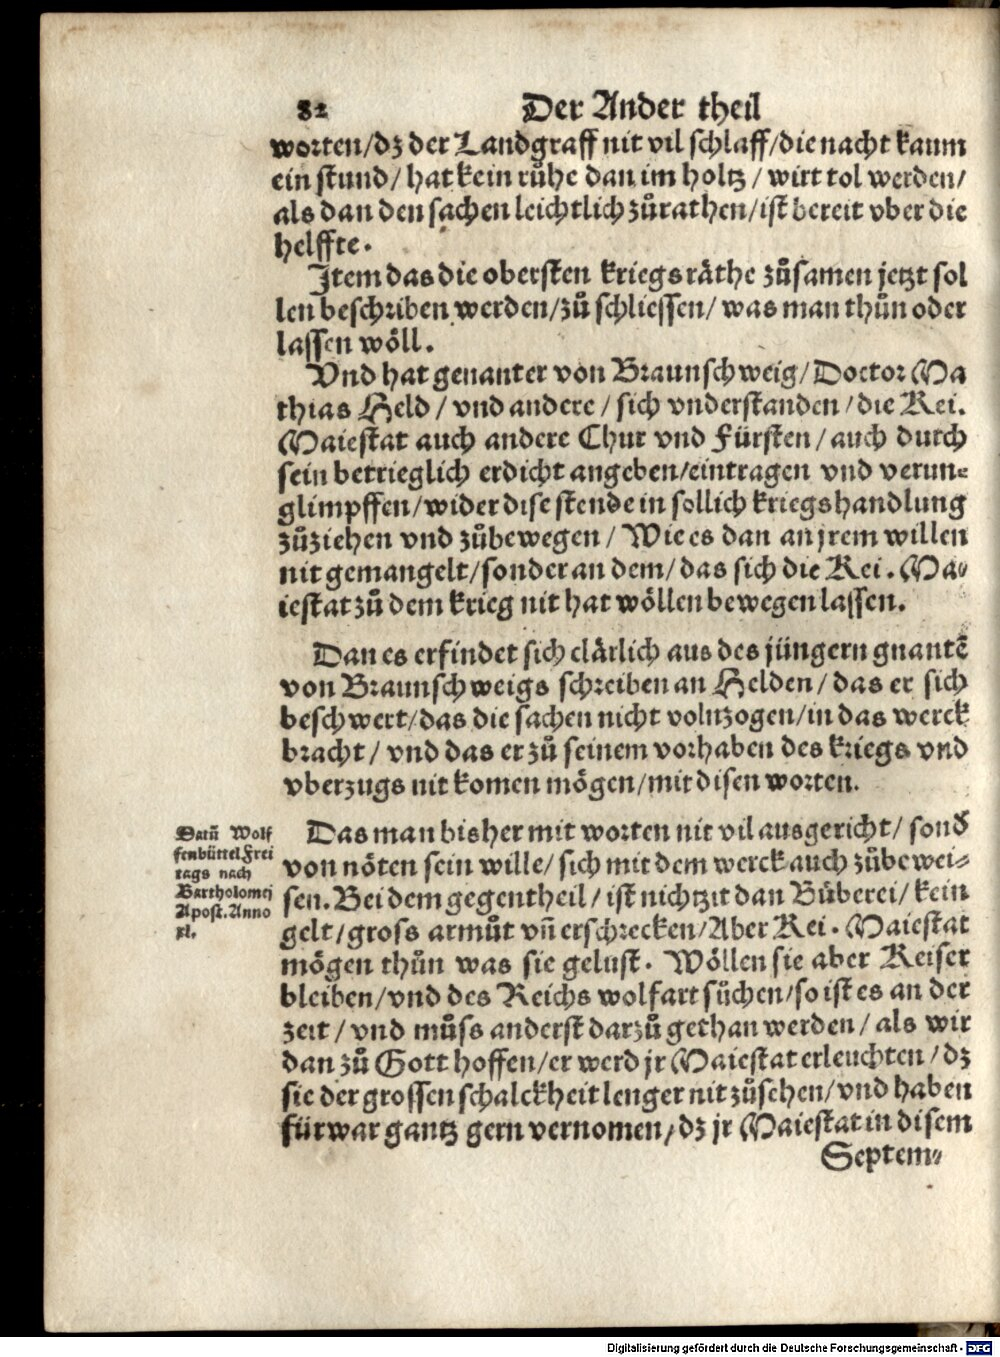 82 Der Ander theil
worten/dz der Landgraff nit vil schlaff/die nacht kaum
ein stund/ hat kein růhe dan im holtz/ wirt tol werden/
als dan den sachen leichtlich zůrathen/ist bereit vber die
helffte.
Item das die obersten kriegs räthe zůsamen jetzt sol
len beschriben werden/zů schliessen/ was man thůn oder
lassen wöll.
Vnd hat genanter von Braunschweig/Doctor Ma
thias Held/ vnd andere/ sich vnderstanden/die Kei.
Maiestat auch andere Chur vnd Fürsten/auch durch
sein betrieglich erdicht angeben/eintragen vnd verun⸗
glimpffen/wider dise stende in sollich kriegshandlung
zůziehen vnd zůbewegen/ Wie es dan an jrem willen
nit gemangelt/sonder an dem/das sich die Kei. Ma⸗
iestat zů dem krieg nit hat wöllen bewegen lassen.
Dan es erfindet sich clärlich aus des jüngern gnantē
von Braunschweigs schreiben an Helden/das er sich
beschwert/das die sachen nicht volnzogen/in das werck
bracht/ vnd das er zů seinem vorhaben des kriegs vnd
vberzugs nit komen mögen/mit disen worten.
Datū Wolf
fenbüttel Frei
tags nach
Bartholomej
Apost. Anno
xl.
Das man bisher mit worten nit vil ausgericht/ sonď
von nöten sein wille/ sich mit dem werck auch zůbewei⸗
sen. Bei dem gegentheil/ ist nichtzit dan Büberei/ kein
gelt/gross armůt vñ erschrecken/Aber Kei. Maiestat
mögen thůn was sie gelust. Wöllen sie aber Keiser
bleiben/vnd des Reichs wolfart sůchen/so ist es an der
zeit/ vnd můss anderst darzů gethan werden/ als wir
dan zů Gott hoffen/er werd jr Maiestat erleuchten/dz
sie der grossen schalckheit lenger nit zůsehen/vnd haben
fürwar gantz gern vernomen/dz jr Maiestat in disem
Septem⸗
Digitalisierung gefördert durch die Deutsche Forschungsgemeinschaft - DFG